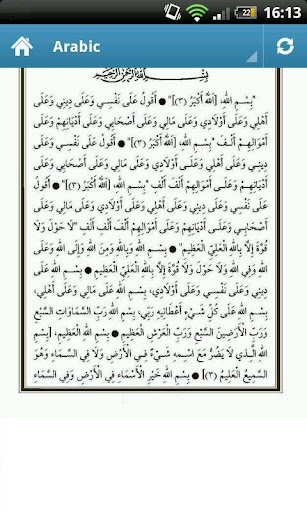 22 16:13
Arabic
بِسْمِ اللهِ الرَّحْمٰنِ الرَّحِيمِ
"بِسْمِ اللهِ، [اللهُ أَكْبَرُ (٣)]" ● أَقُولُ عَلَى نَفْسِي وَعَلَى دِينِي وَعَلَى
أَهْلِي وَعَلَى أَوْلَادِي وَعَلَى مَالِي وَعَلَى أَصْحَابِي وَعَلَى أَدْيَانِهِمْ وَعَلَى
أَمْوَالِهِمْ أَلْفَ "بِسْمِ اللهِ، [اللهُ أَكْبَرُ (٣)]" ● أَقُولُ عَلَى نَفْسِي وَعَلَى
دِينِي وَعَلَى أَهْلِي وَعَلَى أَوْلَادِي وَعَلَى مَالِي وَعَلَى أَصْحَابِي وَعَلَى
أَدْيَانِهِمْ وَعَلَى أَمْوَالِهِمْ أَلْفَ أَلْفِ "بِسْمِ اللهِ، [اللهُ أَكْبَرُ (٣)]" ● أَقُولُ
عَلَى نَفْسِي وَعَلَى دِينِي وَعَلَى أَهْلِي وَعَلَى أَوْلَادِي وَعَلَى مَالِي وَعَلَى
أَصْحَابِي وَعَلَى أَدْيَانِهِمْ وَعَلَى أَمْوَالِهِمْ أَلْفَ أَلْفِ أَلْفِ "لَا حَوْلَ وَلَا
قُوَّةَ إِلَّا بِاللهِ الْعَلِيِّ الْعَظِيمِ" ● بِسْمِ اللهِ وَبِاللهِ وَمِنَ اللهِ وَإِلَى اللهِ وَعَلَى
اللهِ وَفِي اللهِ وَلَا حَوْلَ وَلَا قُوَّةَ إِلَّا بِاللهِ الْعَلِيِّ الْعَظِيمِ ● بِسْمِ اللهِ عَلَى
دِينِي وَعَلَى نَفْسِي وَعَلَى أَوْلَادِي، بِسْمِ اللهِ عَلَى مَالِي وَعَلَى أَهْلِي،
بِسْمِ اللهِ عَلَى كُلِّ شَيْءٍ أَعْطَانِيهِ رَبِّي، بِسْمِ اللهِ رَبِّ السَّمَاوَاتِ السَّبْعِ
وَرَبِّ الْأَرَضِينَ السَّبْعِ وَرَبِّ الْعَرْشِ الْعَظِيمِ ● بِسْمِ اللهِ الْعَظِيمِ، [بِسْمِ
اللهِ الَّذِي لَا يَضُرُّ مَعَ اسْمِهِ شَيْءٌ فِي الْأَرْضِ وَلَا فِي السَّمَاءِ وَهُوَ
السَّمِيعُ الْعَلِيمُ (٣)] ● بِسْمِ اللهِ خَيْرِ الْأَسْمَاءِ فِي الْأَرْضِ وَفِي السَّمَاءِ